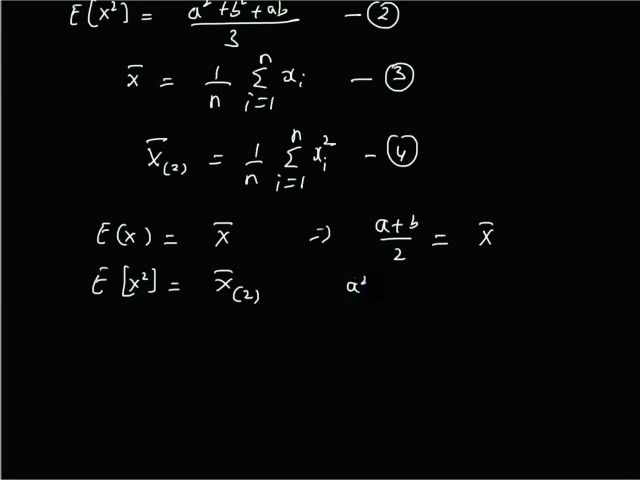 E[x²] = a²+b²+ab / 3 — ②
x̄ = 1/n Σ_{i=1}^{n} x_i — ③
x̄_(2) = 1/n Σ_{i=1}^{n} x_i² — ④
E(x) = x̄ ⇒ a+b / 2 = x̄
E[x²] = x̄_(2) a²